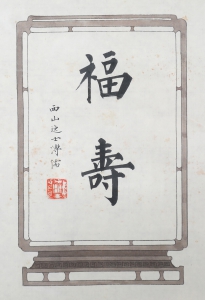 福
壽
西山逸士溥儒